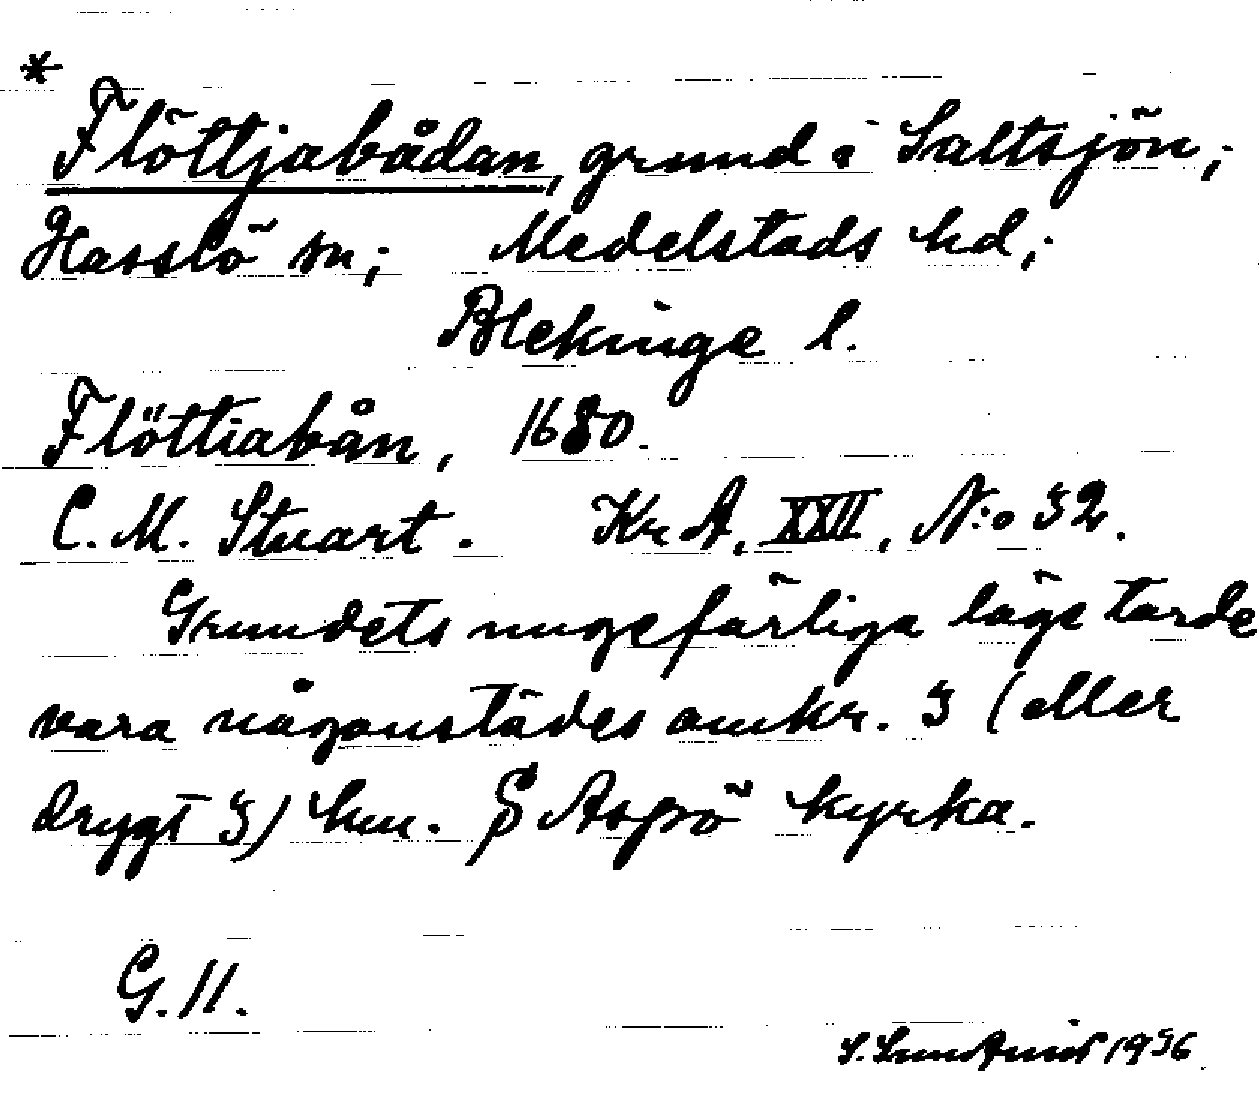 *
Flöttjabådan, grund i Saltsjön;
Hasslö sn; Medelstads hd;
Blekinge l.
Flöttiabån, 1680.
C. M. Stuart. Kr A, XXII, N:o 32.
Grundets ungefärliga läge torde
vara någonstädes omkr. 3 (eller
drygt 3) km. S Aspö kyrka.
G. 11.
S. Lundqvist 1936